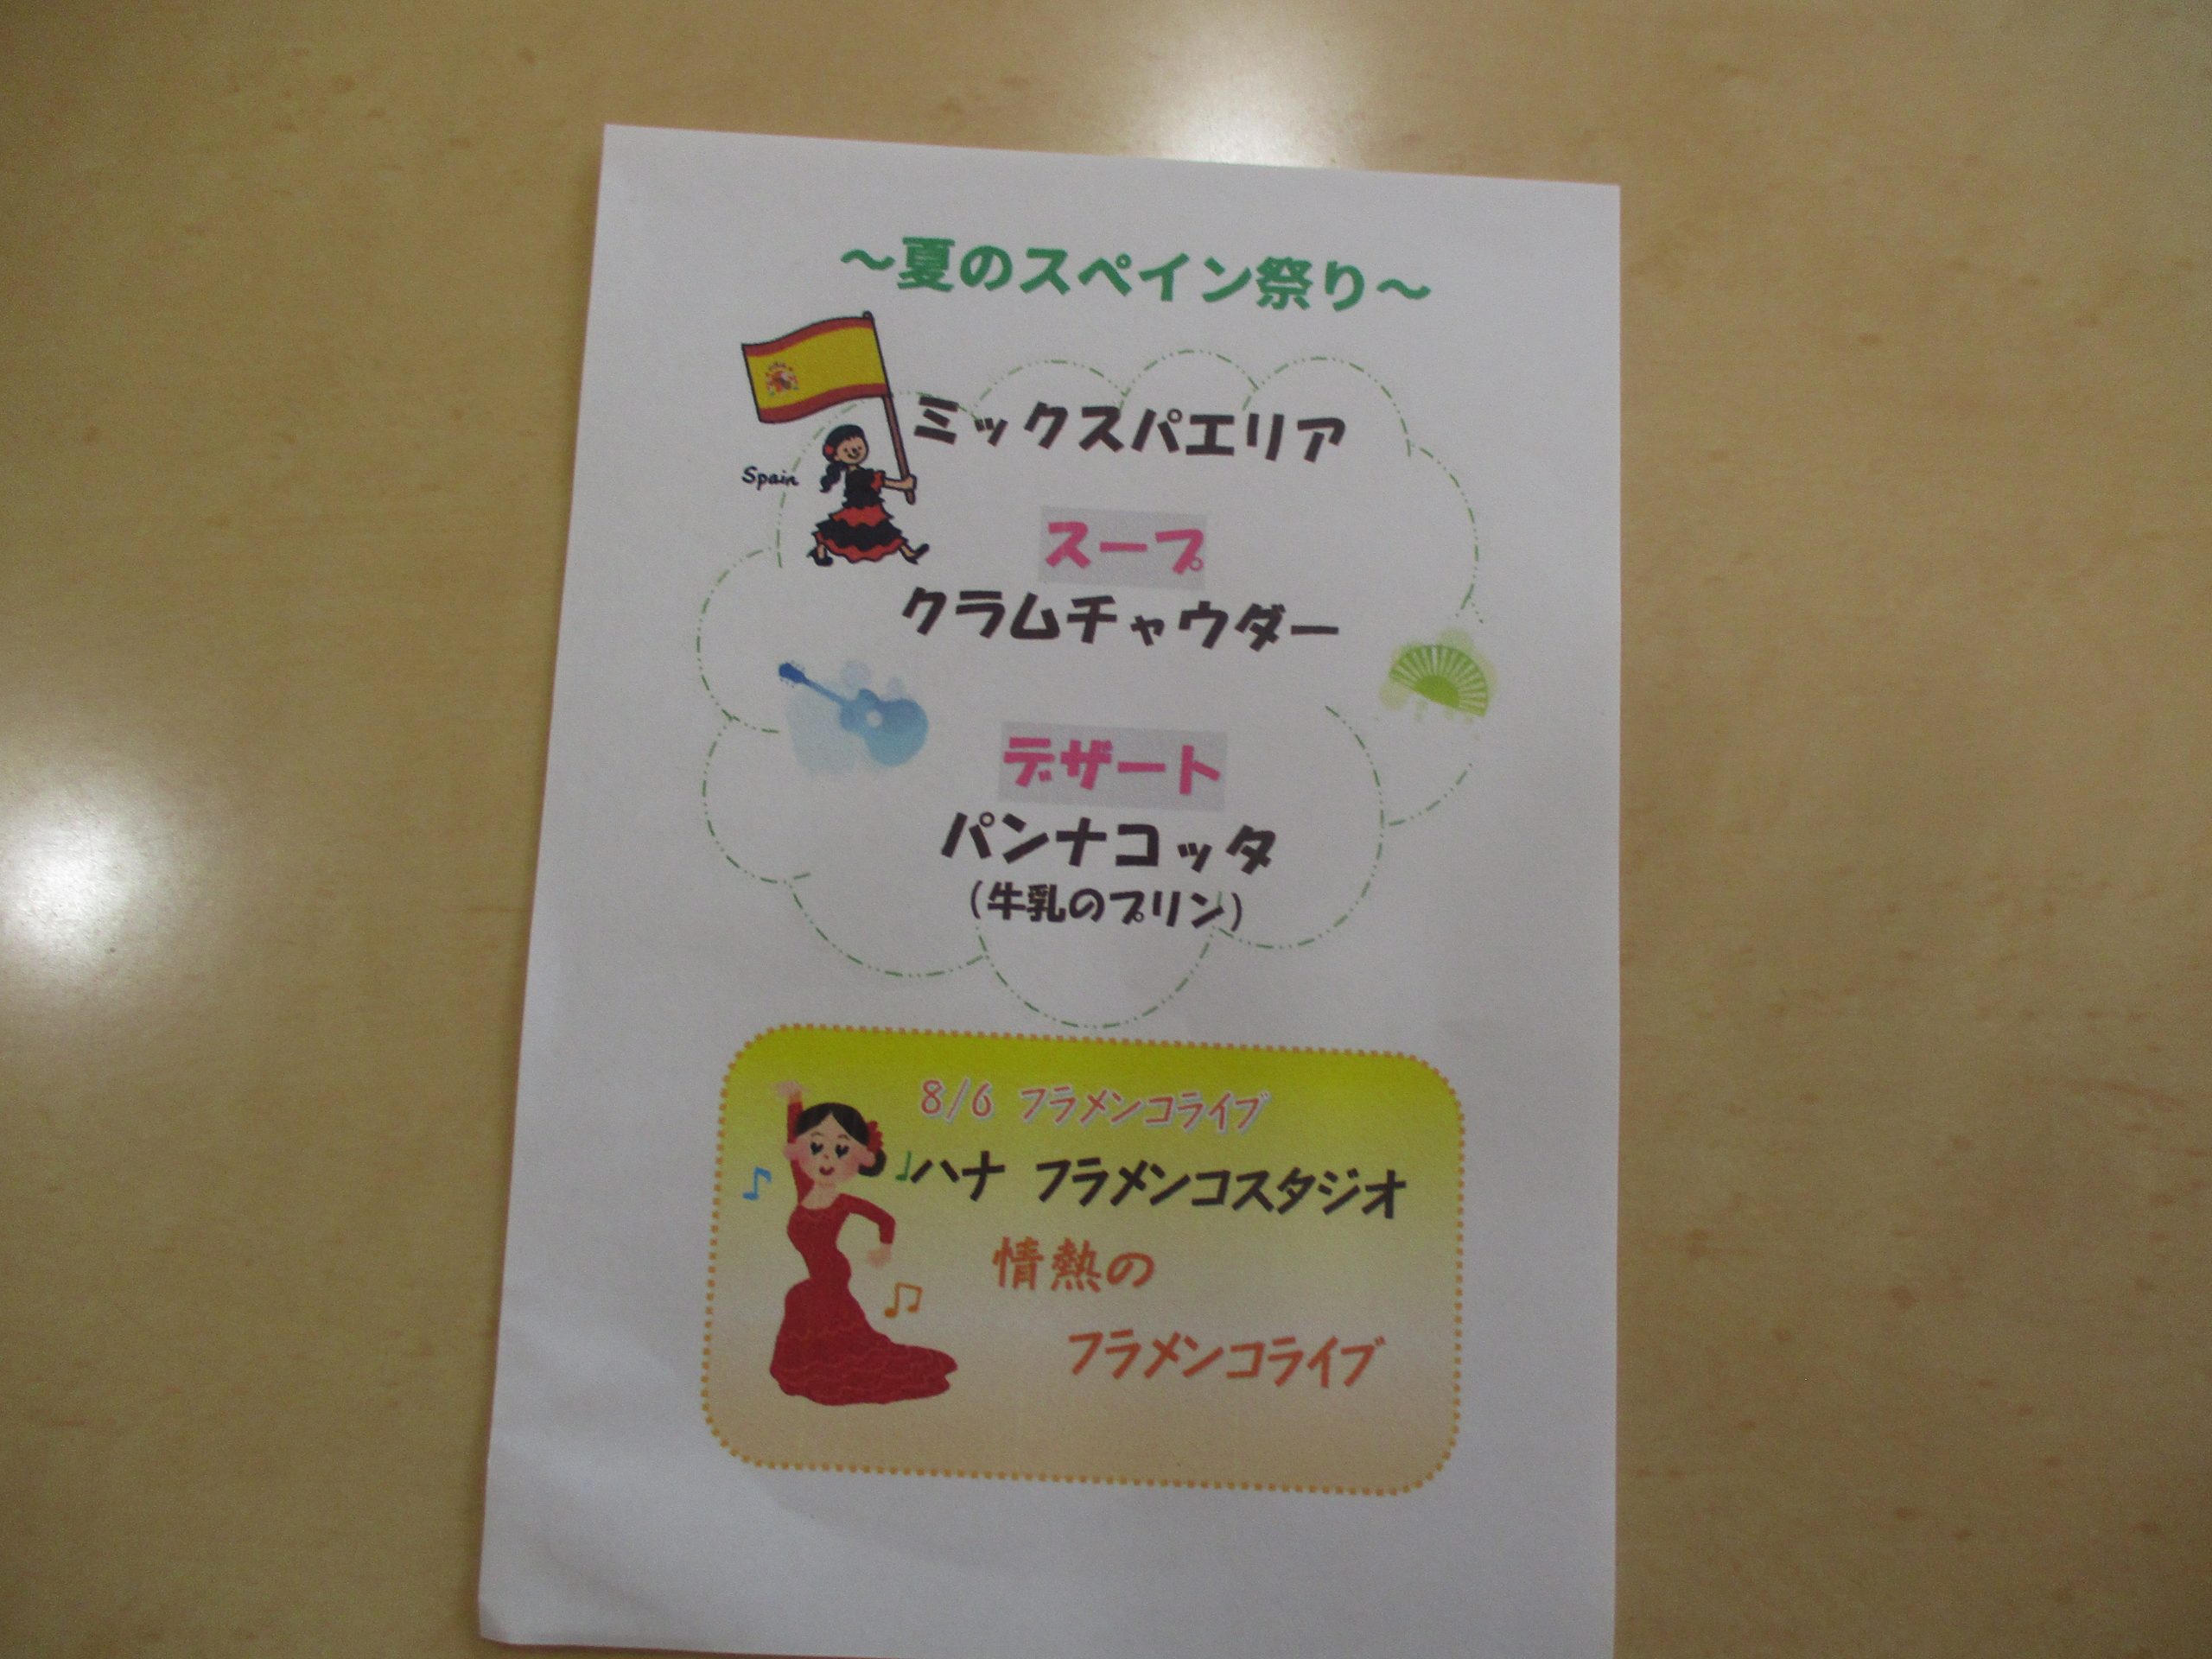 ～夏のスペイン祭り～
ミックスパエリア
Spain
スープ
クラムチャウダー
デザート
パンナコッタ
(牛乳のプリン)
8/6 フラメンコライブ
ハナ フラメンコスタジオ
情熱の
フラメンコライブ